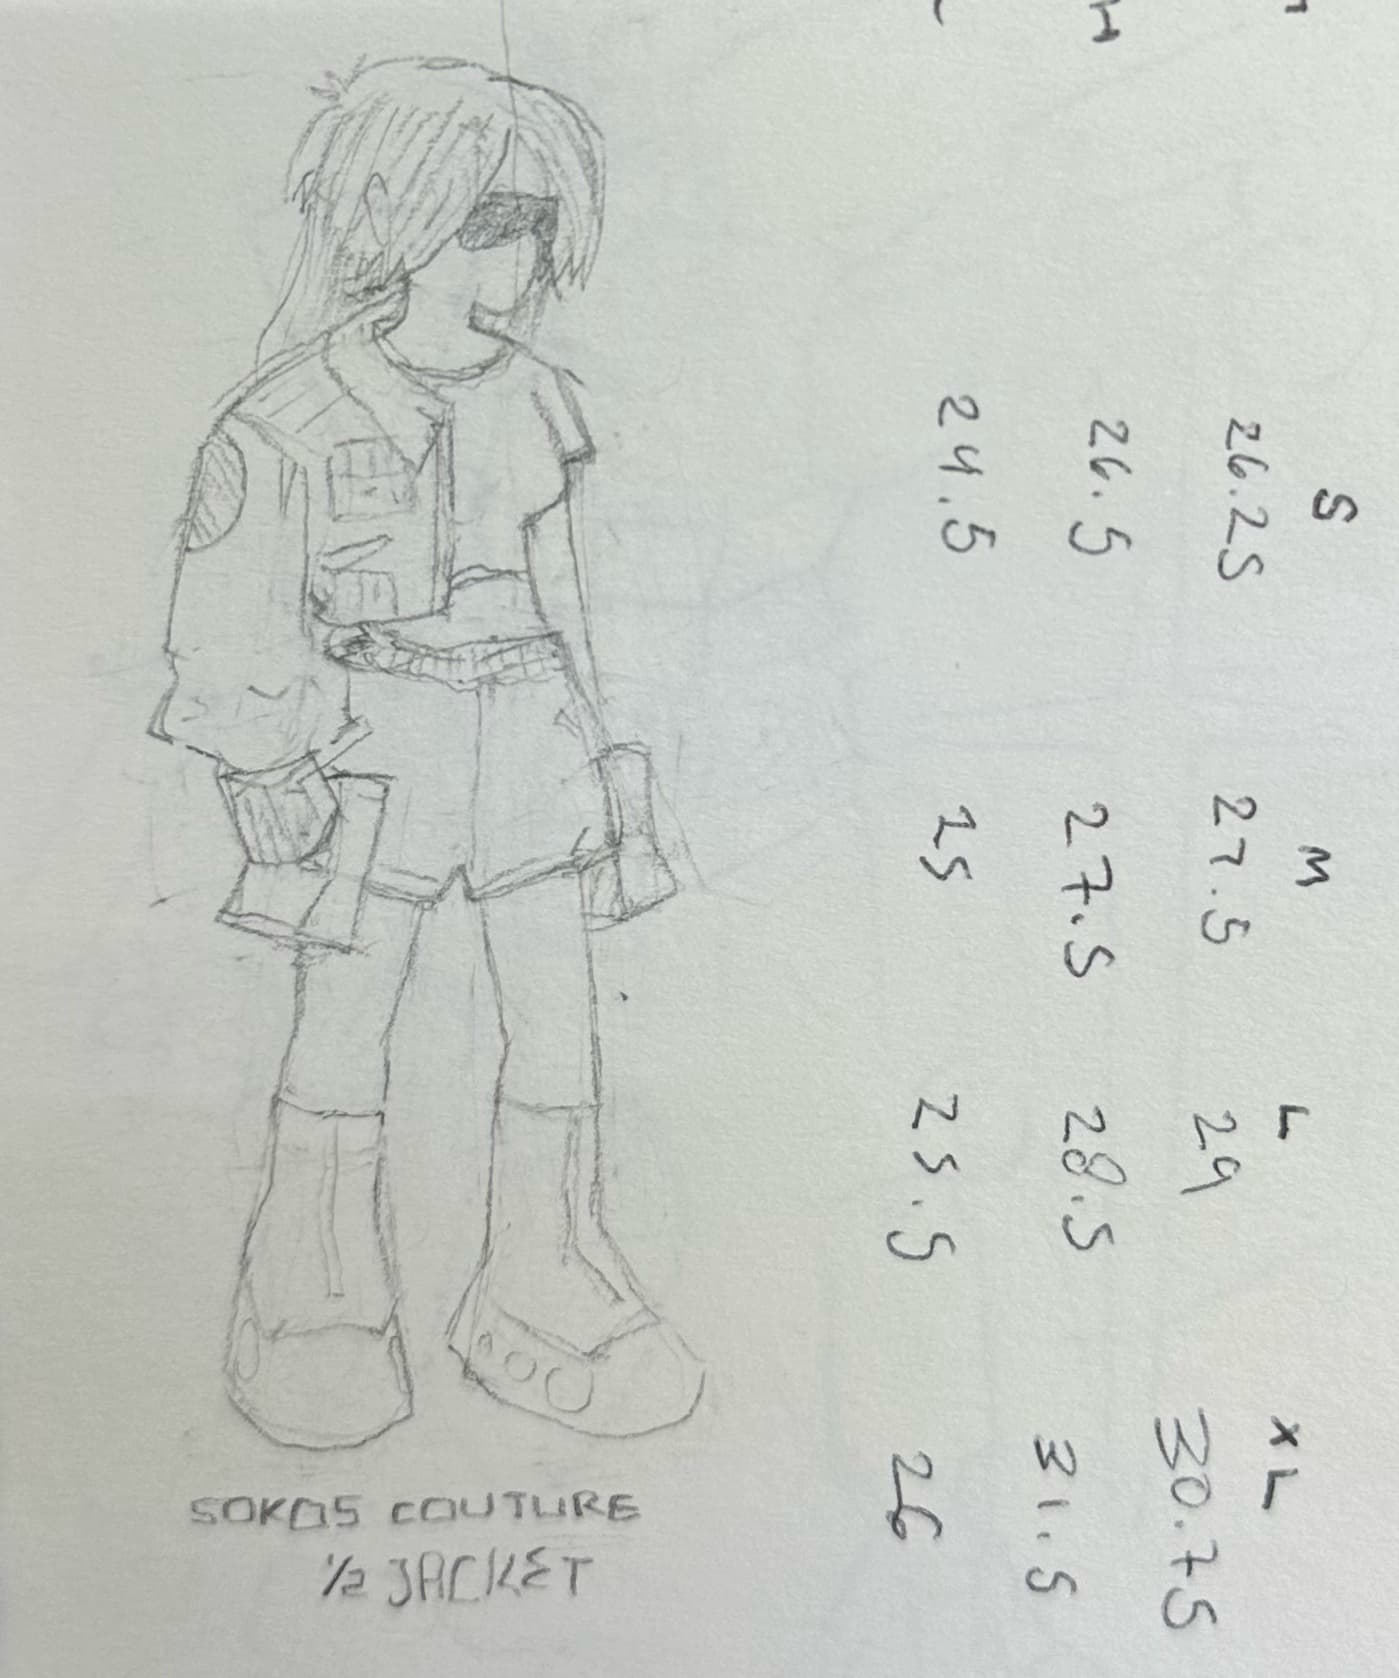 SOKOS COUTURE
1/2 JACKET
S M L XL
26.25 27.5 29 30.75
H 26.5 27.5 28.5 31.5
L 24.5 25 25.5 26